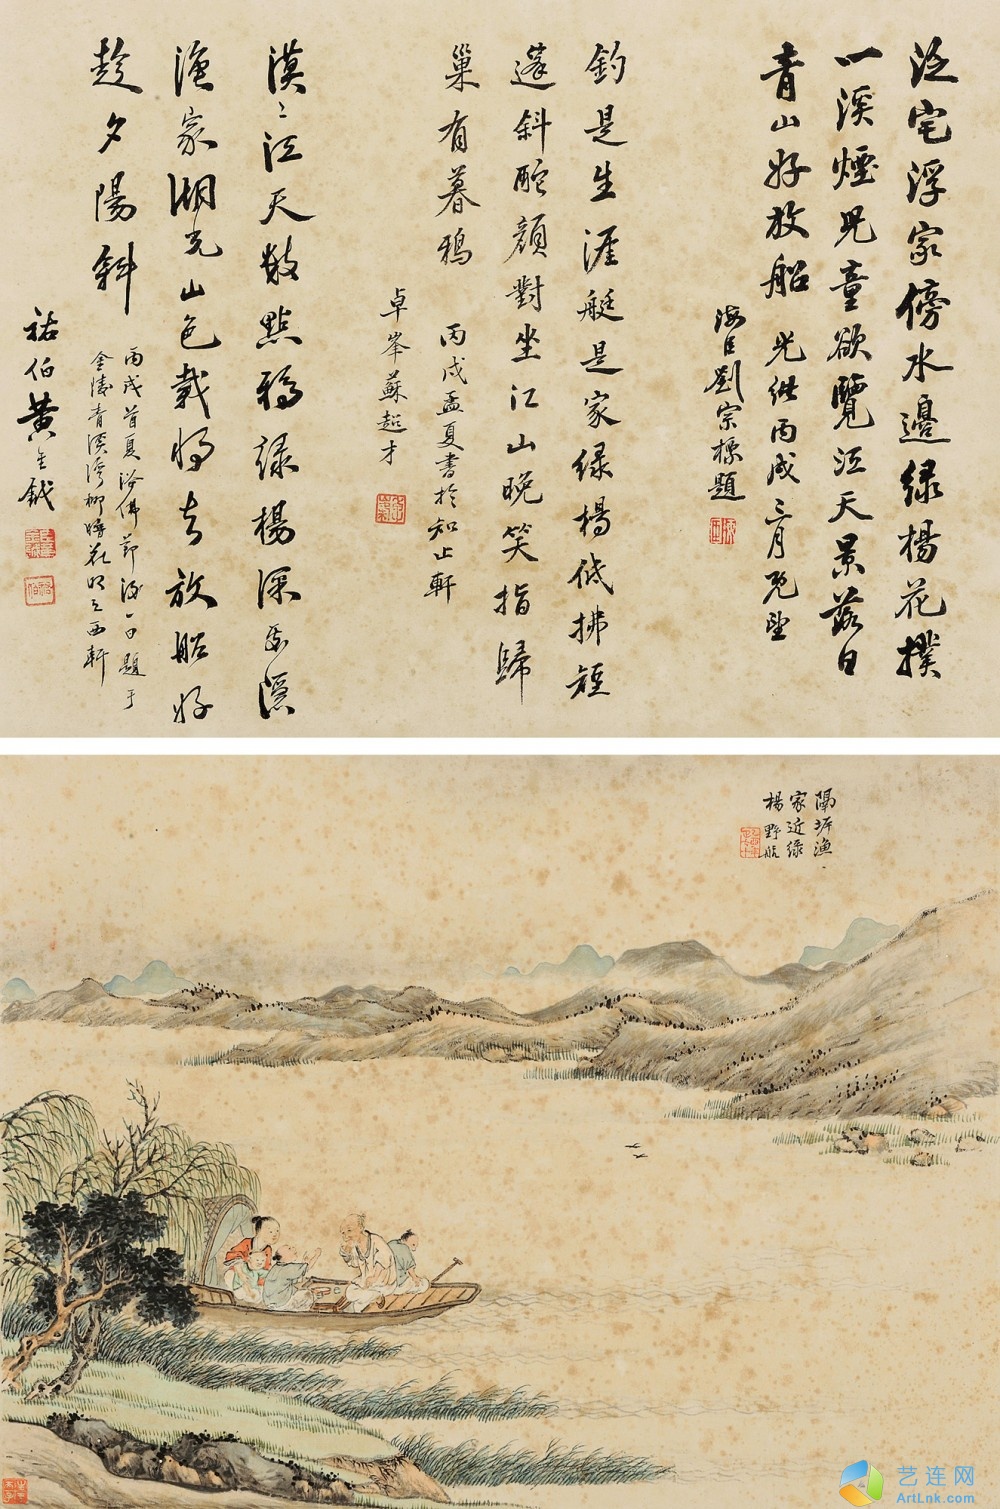 泛宅浮家傍水邊綠楊花撲
一溪煙兒童欲覽江天景落日
青山好放船 光緒丙戌三月既望
海臣劉宗標題
釣是生涯艇是家綠楊低拂短
蓬斜酡顏對坐江山晚笑指歸
巢有暮鴉 丙戌孟夏書於知止軒
卓峯蘇超才
漠〻江天數點鴉綠楊深處隱
漁家湖光山色載將去放船好
趁夕陽斜
丙戌首夏浴佛節後一日題于
金陵青溪溪柳晴花明之西軒
祐伯黃全鉞
隔坪漁
家近綠
楊野航
艺连网
ArtLnk.com